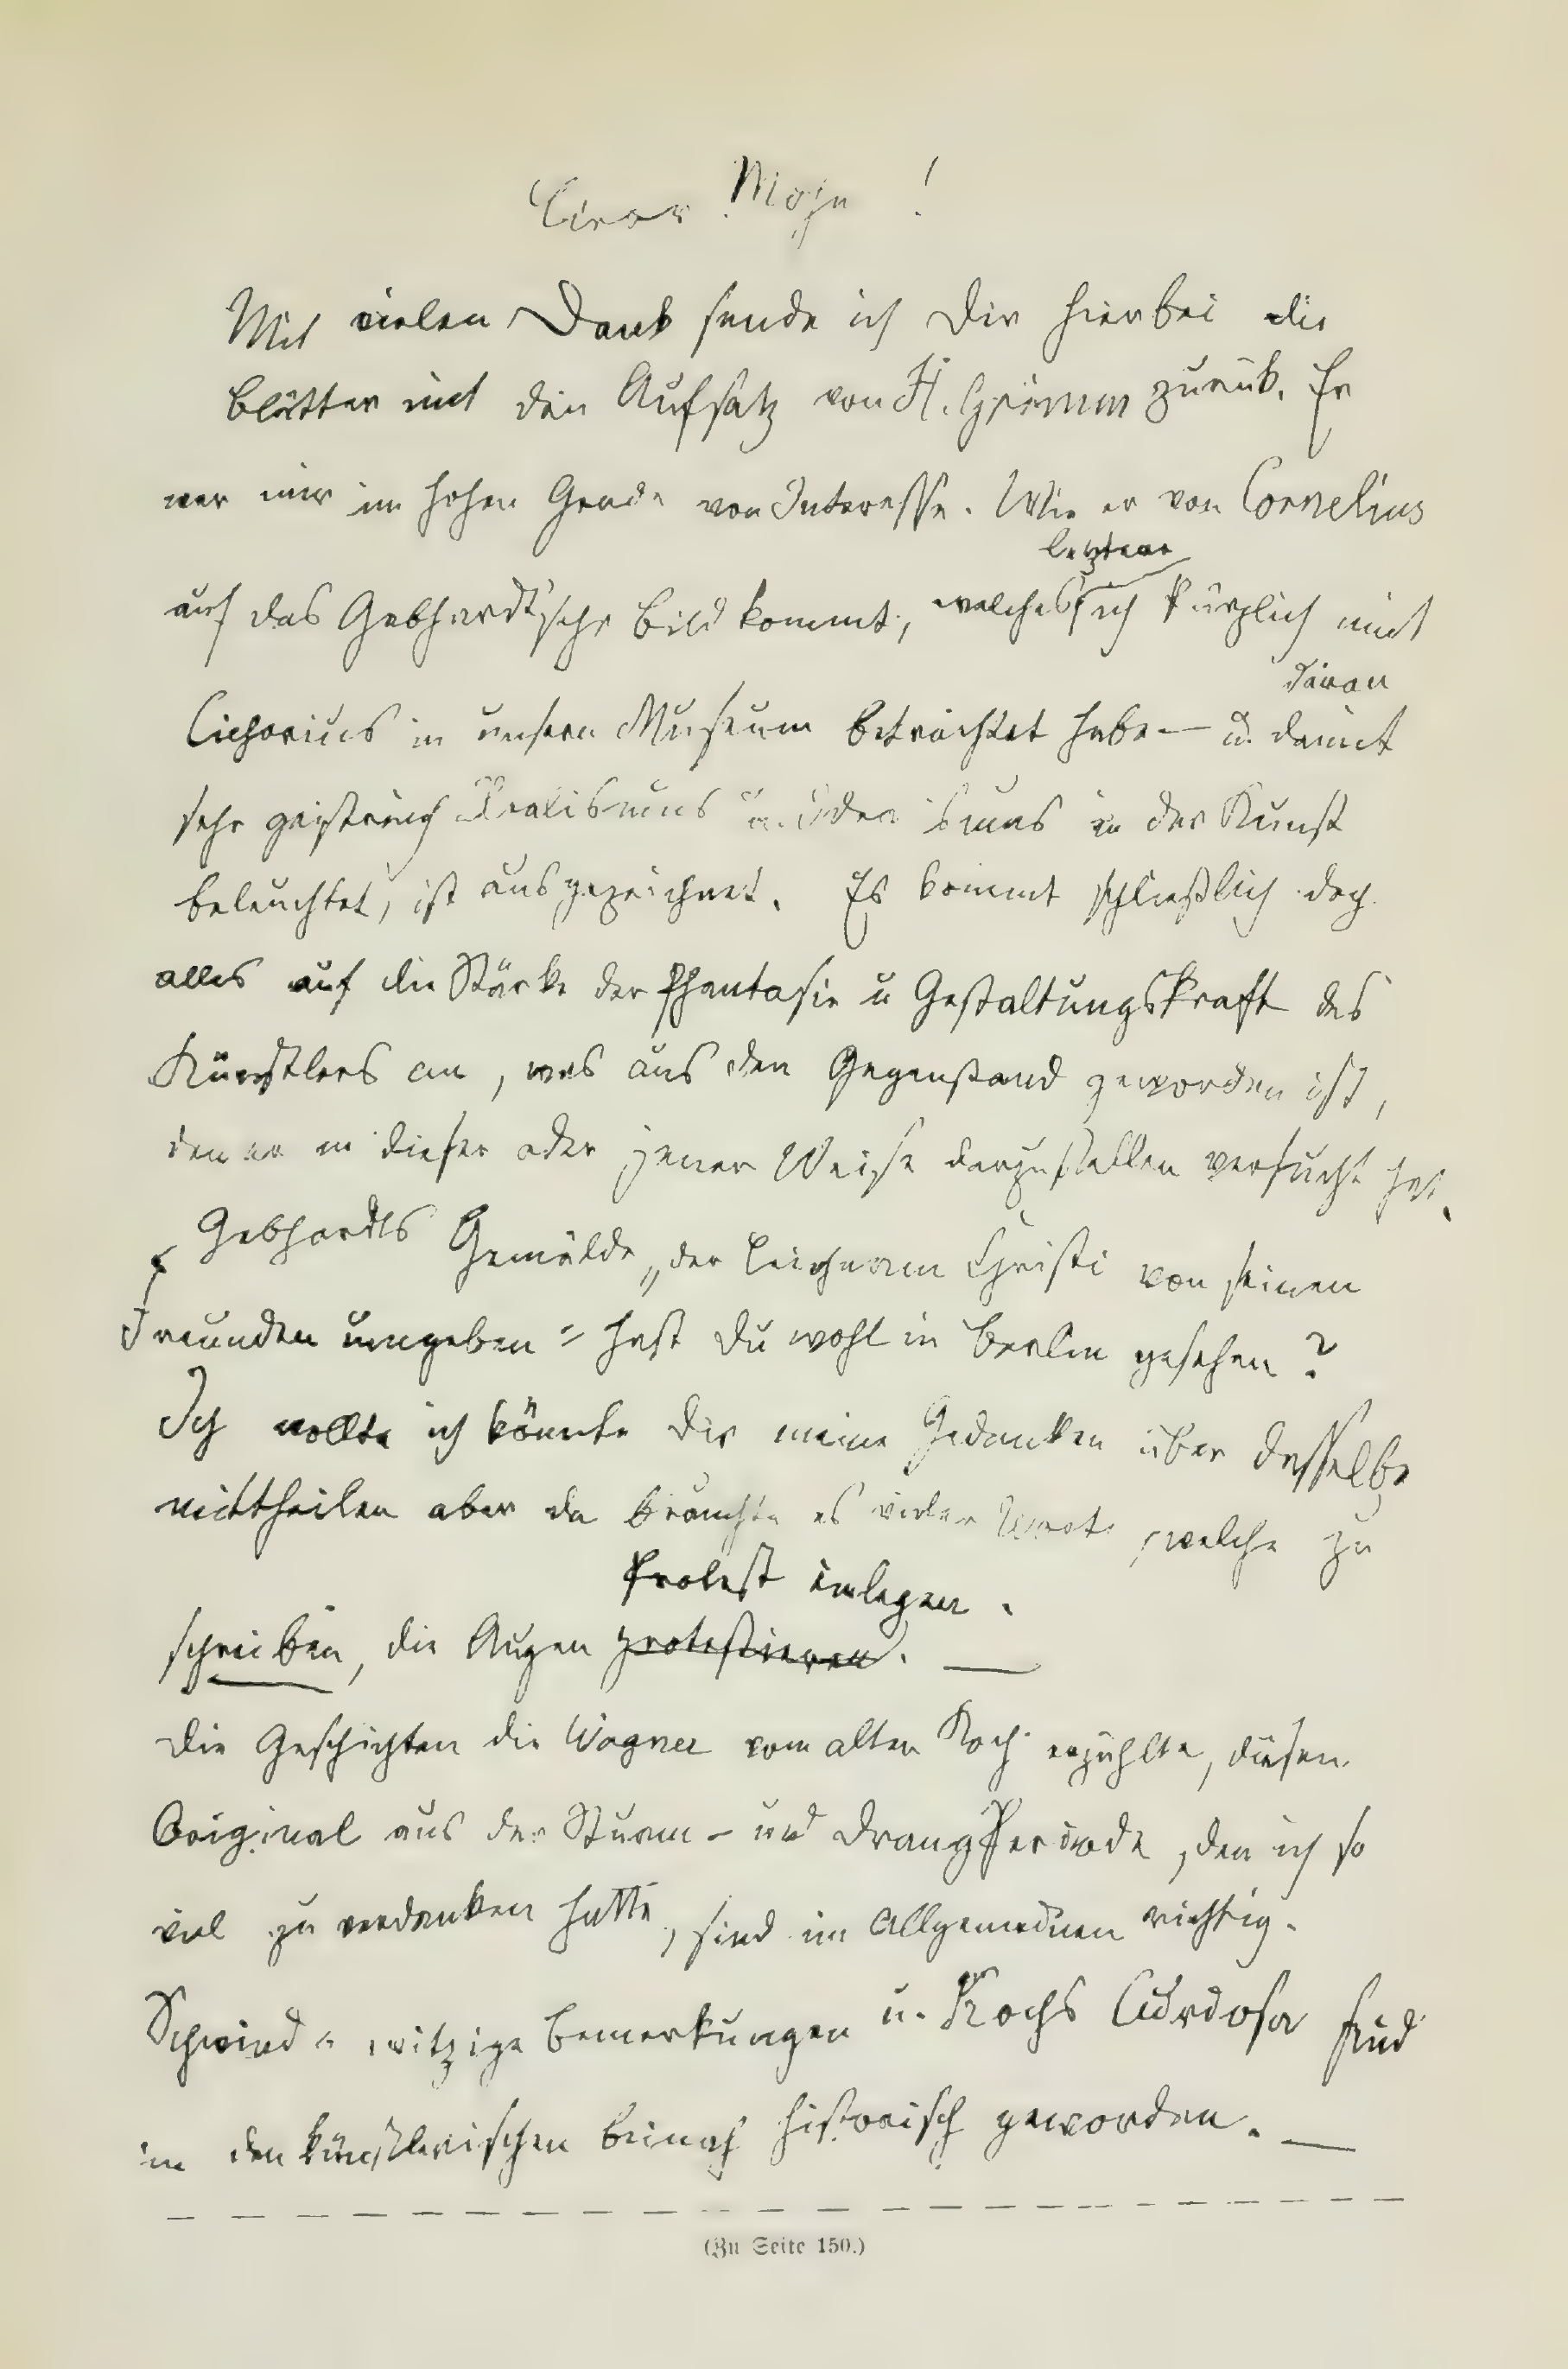 Mit vielen Dank sende ich Dir hierbei die
Blätter mit den Aufsatz von H. Grimm zurük. Er
war mir im hohen Grade von Interesse. Wie er von Cornelius
auf das Gebhardt'sche Bild kommt, welches letztere ich kürzlich mit
Cichorius in unsern Museum betrachtet habe — u. daran damit
sehr geistreich Realismus u. Idealismus in der Kunst
beleuchtet, ist ausgezeichnet. Es kommt schließlich doch
alles auf die Stärke der Phantasie u Gestaltungskraft des
Künstlers an, was aus den Gegenstand geworden ist,
den er in dieser oder jener Weise darzustellen versucht hat.
Gebhardts Gemälde „der Leichnam Christi von seinen
Freunden umgeben" hast Du wohl in Berlin gesehen?
Ich wollte ich könnte Dir meine Gedanken über dasselbe
mittheilen aber da brauchte es vieler Worte, welche zu
Protest einlegen.
schreiben, die Augen protestieren. —
Die Geschichten die Wagner vom alten Koch erzählte, diesen
Original aus der Sturm- und Drang Periode, den ich so
viel zu verdanken hatte, sind im Allgemeinen richtig.
Schwind's witzige Bemerkungen u. Kochs sind
in den künstlerischen beinah historisch geworden. —
(Zu Seite 150.)